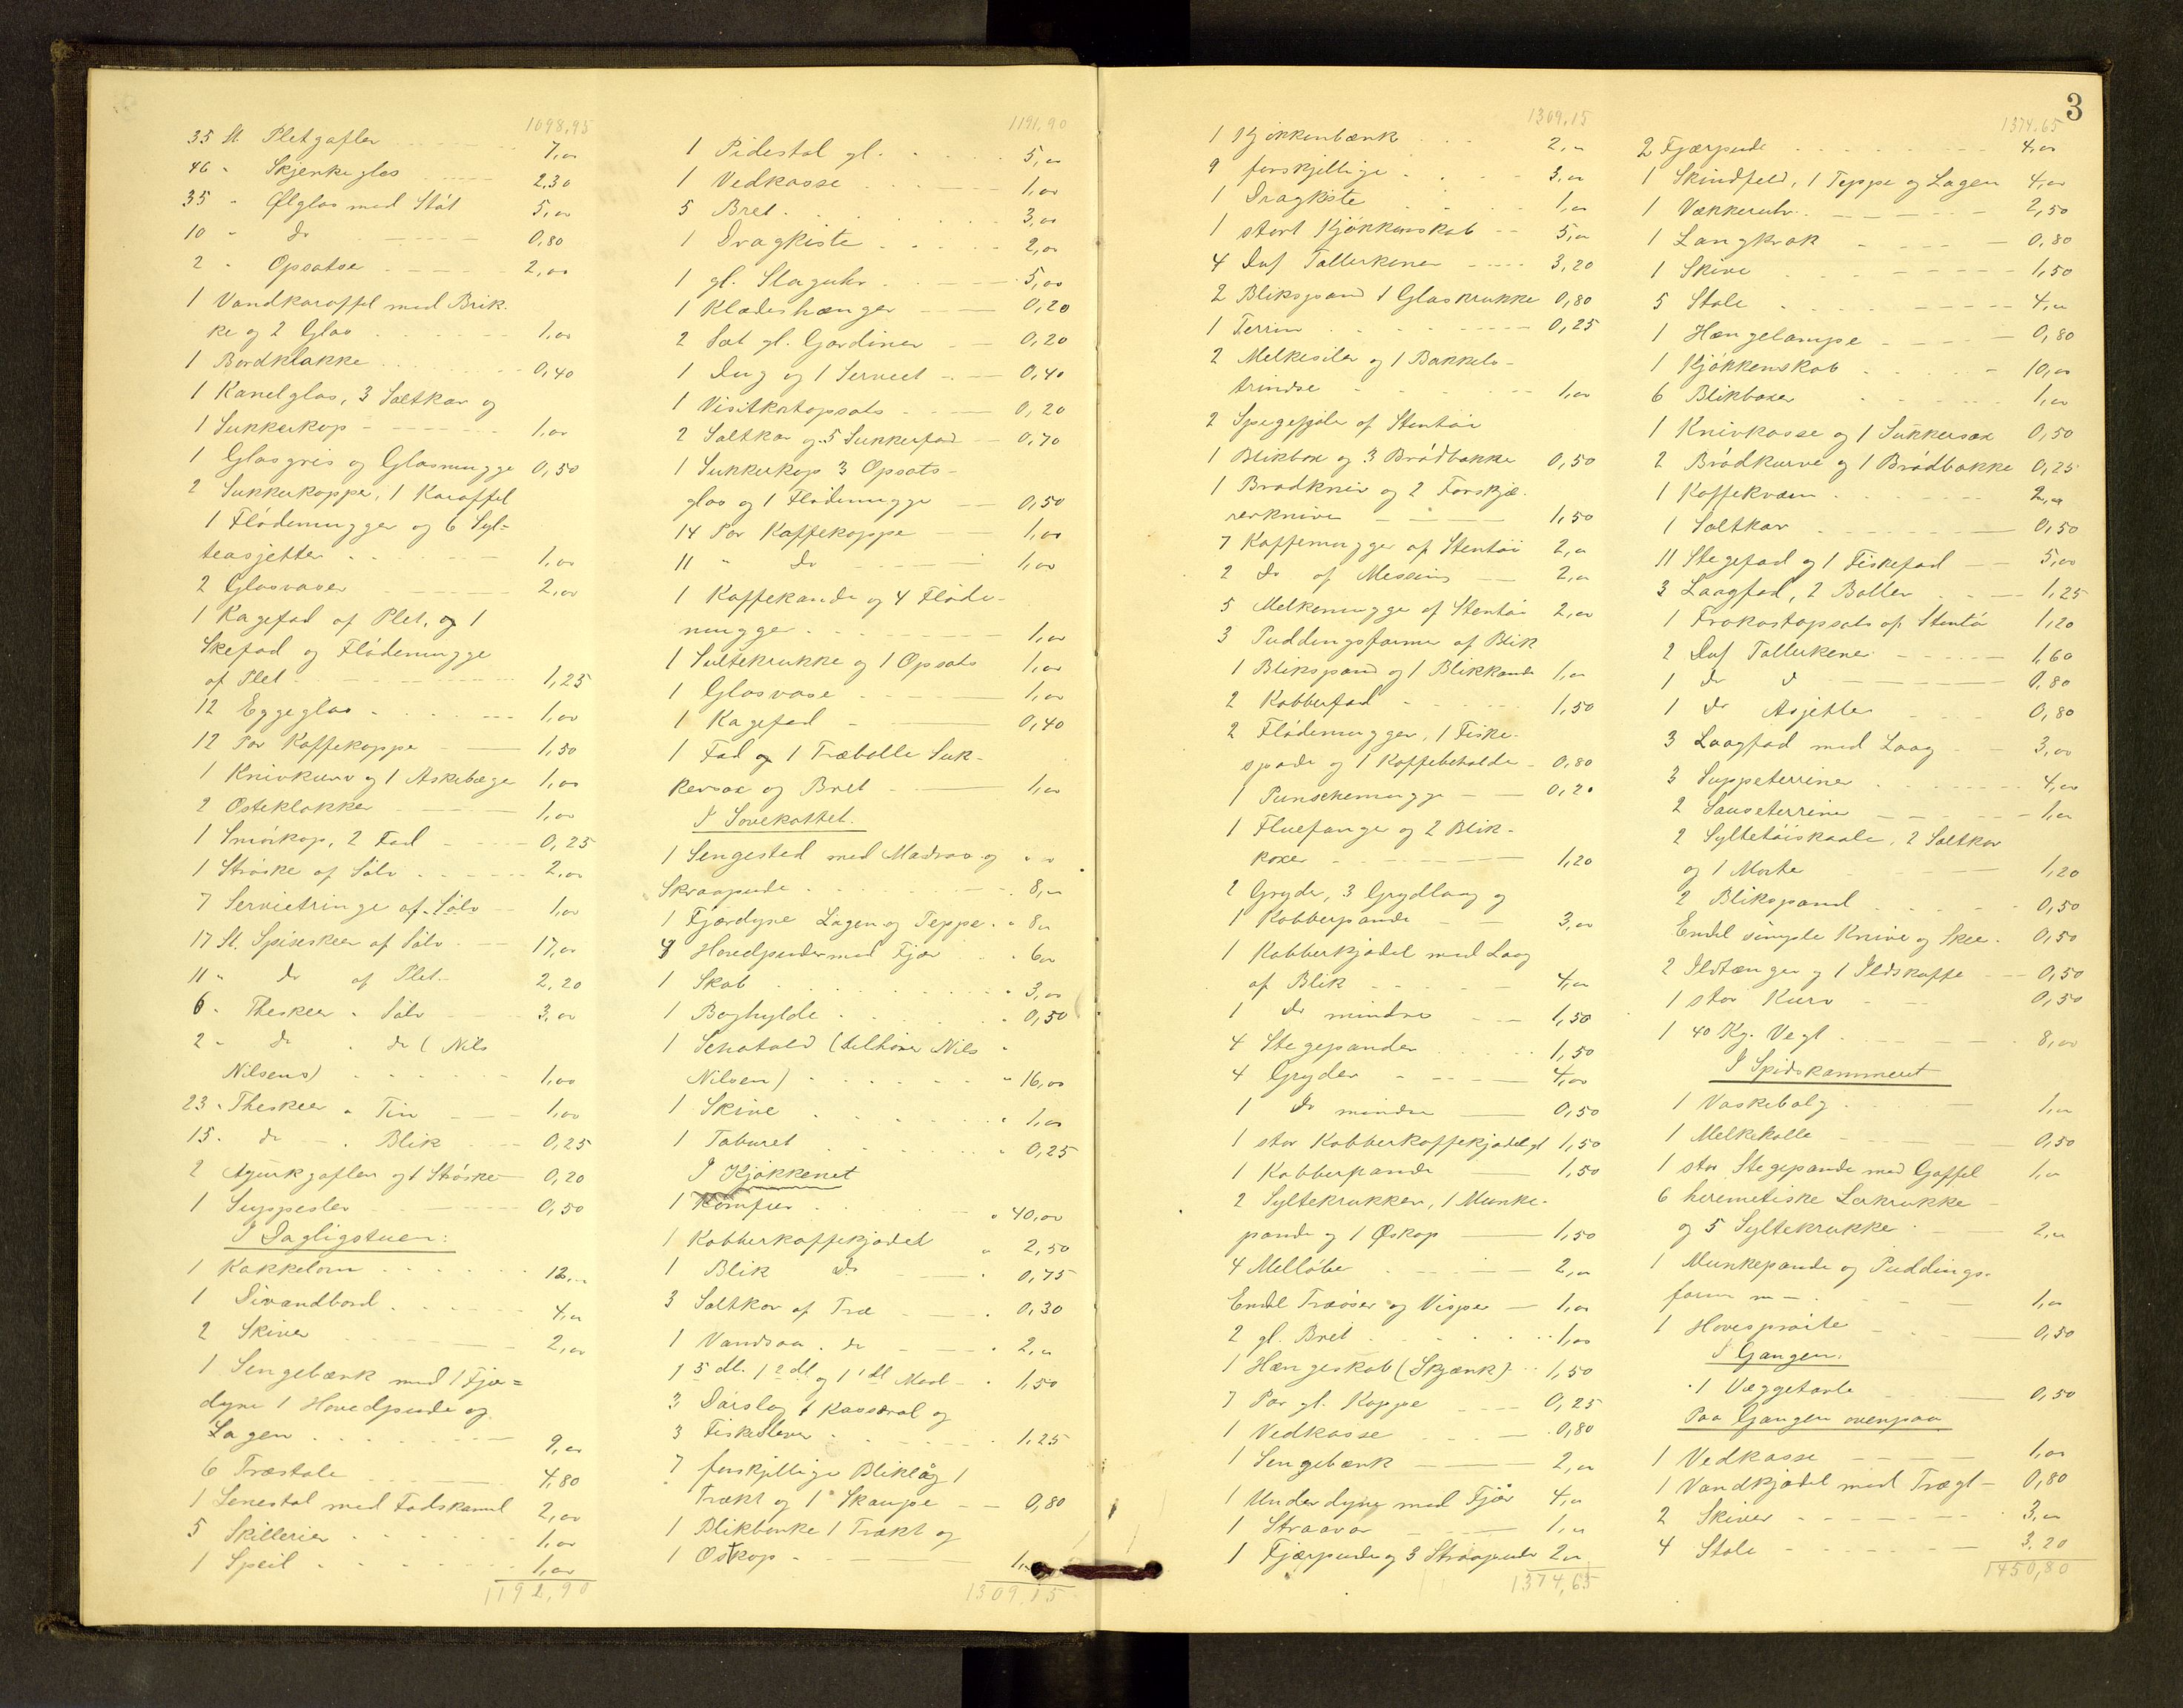 1098,95
35 St. Pletgafler 7,00
46 " Skjenkeglas 2,30
35 " Ølglas med Stöt 5,00
10 " do 0,80
2 " Opsatse 2,00
1 Vandkaraffel med Brik-
ke og 2 Glas 1,00
1 Bordklokke 0,40
1 Kanelglas, 3 Saltkar og
1 Sukkerkop 1,00
1 Glasgris og Glasmugge 0,50
2 Sukkerkopper, 1 Karaffel
1 Flödemugger og 6 Syl=
teasjetter 1,00
2 Glasvaser 2,00
1 Kagefad af Plet, og 1
Skefad og Flödemugge
af Plet 1,25
12 Eggeglas 1,00
12 Par Kaffekopper 1,50
1 Knivkurv og 1 Askebæger 1,00
2 Osteklokker 1,00
1 Smörkop, 2 Fad 0,25
1 Ströske af Sölv 2,00
7 Servietringe af Sölv 1,00
17 St. Spiseskeer af Sölv 17,00
11 " do af Plet 2,20
6 " Theskeer " Sölv 3,00
2 " do " do (Nils
Nilsens) 1,00
23 " Theskeer " Tin 1,00
15 " do " Blik 0,25
2 Agurkgafler og 1 Ströske 0,20
1 Suppeslev 0,50
I Dagligstuen:
1 Kakkelovn 12,00
1 Divandbord 4,00
2 Skiver 2,00
1 Sengebænk med 1 Fjær=
dyne 1 Hovedpude og
Lagen 9,00
6 Træstole 4,80
1 Lænestol med Fodskammel 2,00
5 Skillerier 1,00
1 Speil 1,00
1192,90
1191,90
1 Pidestal gl. 5,00
1 Vedkasse 1,00
5 Bret 3,00
1 Dragkiste 2,00
1 gl. Slaguhr 5,00
1 Klædeshænger 0,20
2 Sæt gl. Gardiner 0,20
1 Dug og 1 Serviet 0,40
1 Visitkortopsats 0,20
2 Saltkar og 5 Sukkerfad 0,70
1 Sukkerkop 3 Opsats-
glas og 1 Flödemugge 0,50
14 Par Kaffekopper 1,00
11 " do 1,00
1 Kaffekande og 4 Flöde-
mugger 1,00
1 Sultekrukke og 1 Opsats 1,00
1 Glasvase 1,00
1 Kagefad 0,40
1 Fad og 1 Træbolle Suk-
kersax og Bret 1,00
I Sovekottet.
1 Sengested med Madras og
Skraapude 8,00
1 Fjærdyne Lagen og Teppe 8,00
4 Hovedpuder med Fjær 6,00
1 Skab 3,00
1 Boghylde 0,50
1 Schatold (tilhörer Nils
Nilsen) 16,00
1 Skive 1,00
1 Taburet 0,25
I Kjökkenet
1 Komfur 40,00
1 Kobberkaffekjedel 2,50
1 Blik do 0,75
3 Saltkar af Træ 0,30
1 Vandsaa " do 2,00
1 5 dl. 1 2 dl og 1 1 dl Maal 1,50
3 Dörslag 1 Kasserol og
3 Fiskeslever 1,25
7 forskjellige Bliklåg 1
Trækt og 1 Skaupe 0,80
1 Blikbenke 1 Trækt og
1 Ostkop 1,00
1309,15
1309,15
1 Kjökkenbænk 2,00
9 forskjellige 3,00
1 Dragkiste 1,00
1 stort Kjökkenskab 5,00
4 Dus Tallerkener 3,20
2 Blikspand 1 Glaskrukke 0,80
1 Terrin 0,25
2 Melkesiler og 1 Bakkels-
trindse 1,00
2 Spegefjöler af Stentöi
1 Blikbox og 3 Brödbakke 0,50
1 Brödkniv og 2 Forskjæ-
rerknive 1,50
7 Kaffemugger af Stentöi 2,00
2 do af Messing 2,00
5 Melkemugger af Stentöi 2,00
3 Puddingsformer af Blik
1 Blikspand og 1 Blikkande 1,00
2 Kobberfad 1,50
2 Flödemugger, 1 Fiske-
spade og 1 Kaffebeholder 0,80
1 Punschemugge 0,20
1 Fluefanger og 2 Blik-
boxer 1,20
2 Gryder, 3 Grydlaag og
1 Kobberpande 3,00
1 Kobberkjedel med Laag
af Blik 4,00
1 do mindre 1,50
4 Stegepander 1,50
4 Gryder 4,00
1 do mindre 0,50
1 stor Kobberkaffekjedel gl 1,50
1 Kobberpande 1,50
2 Syltekrukker, 1 Munke-
pande og 1 Öskop 1,50
4 Melløber 2,00
Endel Træöser og Visper 1,00
2 gl. Bret 1,00
1 Hængeskab (Skjænk) 1,50
7 Par gl. Kopper 0,25
1 Vedkasse 0,80
1 Sengebænk 2,00
1 Underdyne med Fjær 4,00
1 Straavar 1,00
1 Fjærpude og 3 Straapuder 2,00
1374,65
3
1374,65
2 Fjærpude 4,00
1 Skindfeld, 1 Teppe og Lagen 4,00
1 Vækkeruhr 2,50
1 Langkrak 0,80
1 Skive 1,50
5 Stole 4,00
1 Hængelampe 0,80
1 Kjökkenskab 10,00
6 Blikboxer 1,00
1 Knivkasse og 1 Sukkersax 0,50
2 Brödkurve og 1 Brödbakke 0,25
1 Kaffekværn 2,00
1 Saltkar 0,50
11 Stegefad og 1 Fiskefad 5,00
3 Laagfad, 2 Boller 1,25
1 Frokostopsats af Stentöi 1,20
2 Dus Tallerkener 1,60
1 do do 0,80
1 do Asjetter 0,80
3 Laagfad med Laag 3,00
3 Suppeterriner 4,00
2 Sauseterriner 1,00
2 Syltetöiskaale, 2 Saltkar
og 1 Morter 1,20
2 Blikspand 0,50
Endel simple Knive og Skeer 0,50
2 Ildtænger og 1 Ildskuffe 0,50
1 stor Kurv 0,50
1 40 Kg. Vegt 8,00
I Spidskammeret
1 Vaskebalg 1,00
1 Melkekolle 0,50
1 stor Stegepande med Gaffel 1,00
6 hermetiske Lerkrukke
og 5 Syltekrukke 2,00
1 Munkepande og Puddings-
form m- 1,00
1 Havespröite 0,50
I Gangen:
1 Væggetavle 0,50
Paa Gangen ovenpaa
1 Vedkasse 1,00
1 Vandkjedel med Trægt 0,80
2 Skiver 3,00
4 Stole 3,20
1450,80